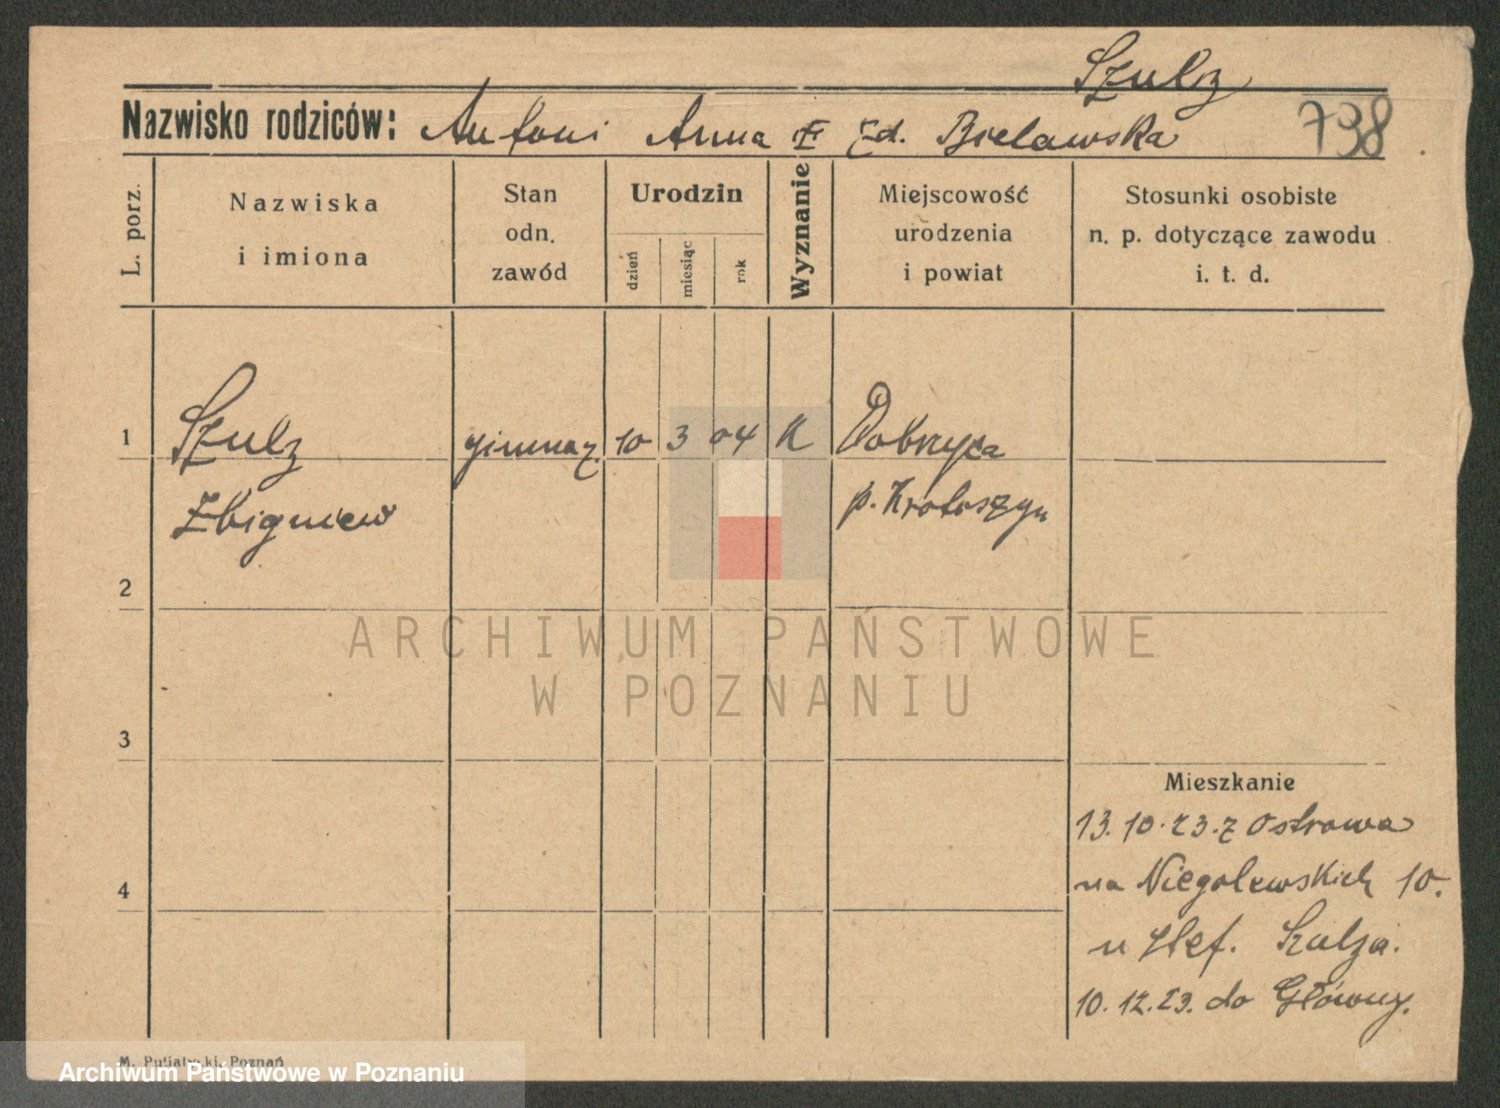 Szulz
Nazwisko rodziców: Antoni Anna zd. Bielawska
738
L. porz.
Nazwiska
i imiona
Stan
odn.
zawód
Urodzin
dzień
miesiąc
rok
Wyznanie
Miejscowość
urodzenia
i powiat
Stosunki osobiste
n. p. dotyczące zawodu
i. t. d.
1 Szulz gimnaz. 10 3 04 K Dobrzyca
Zbigniew p. Krotoszyn
2
ARCHIWUM PAŃSTWOWE
W POZNANIU
3
Mieszkanie
13.10.23. z Ostrowa
4 na Niegolewskich 10.
u Stef. Szulza.
10.12.23. do Główny.
M. Putiatycki, Poznań
Archiwum Państwowe w Poznaniu